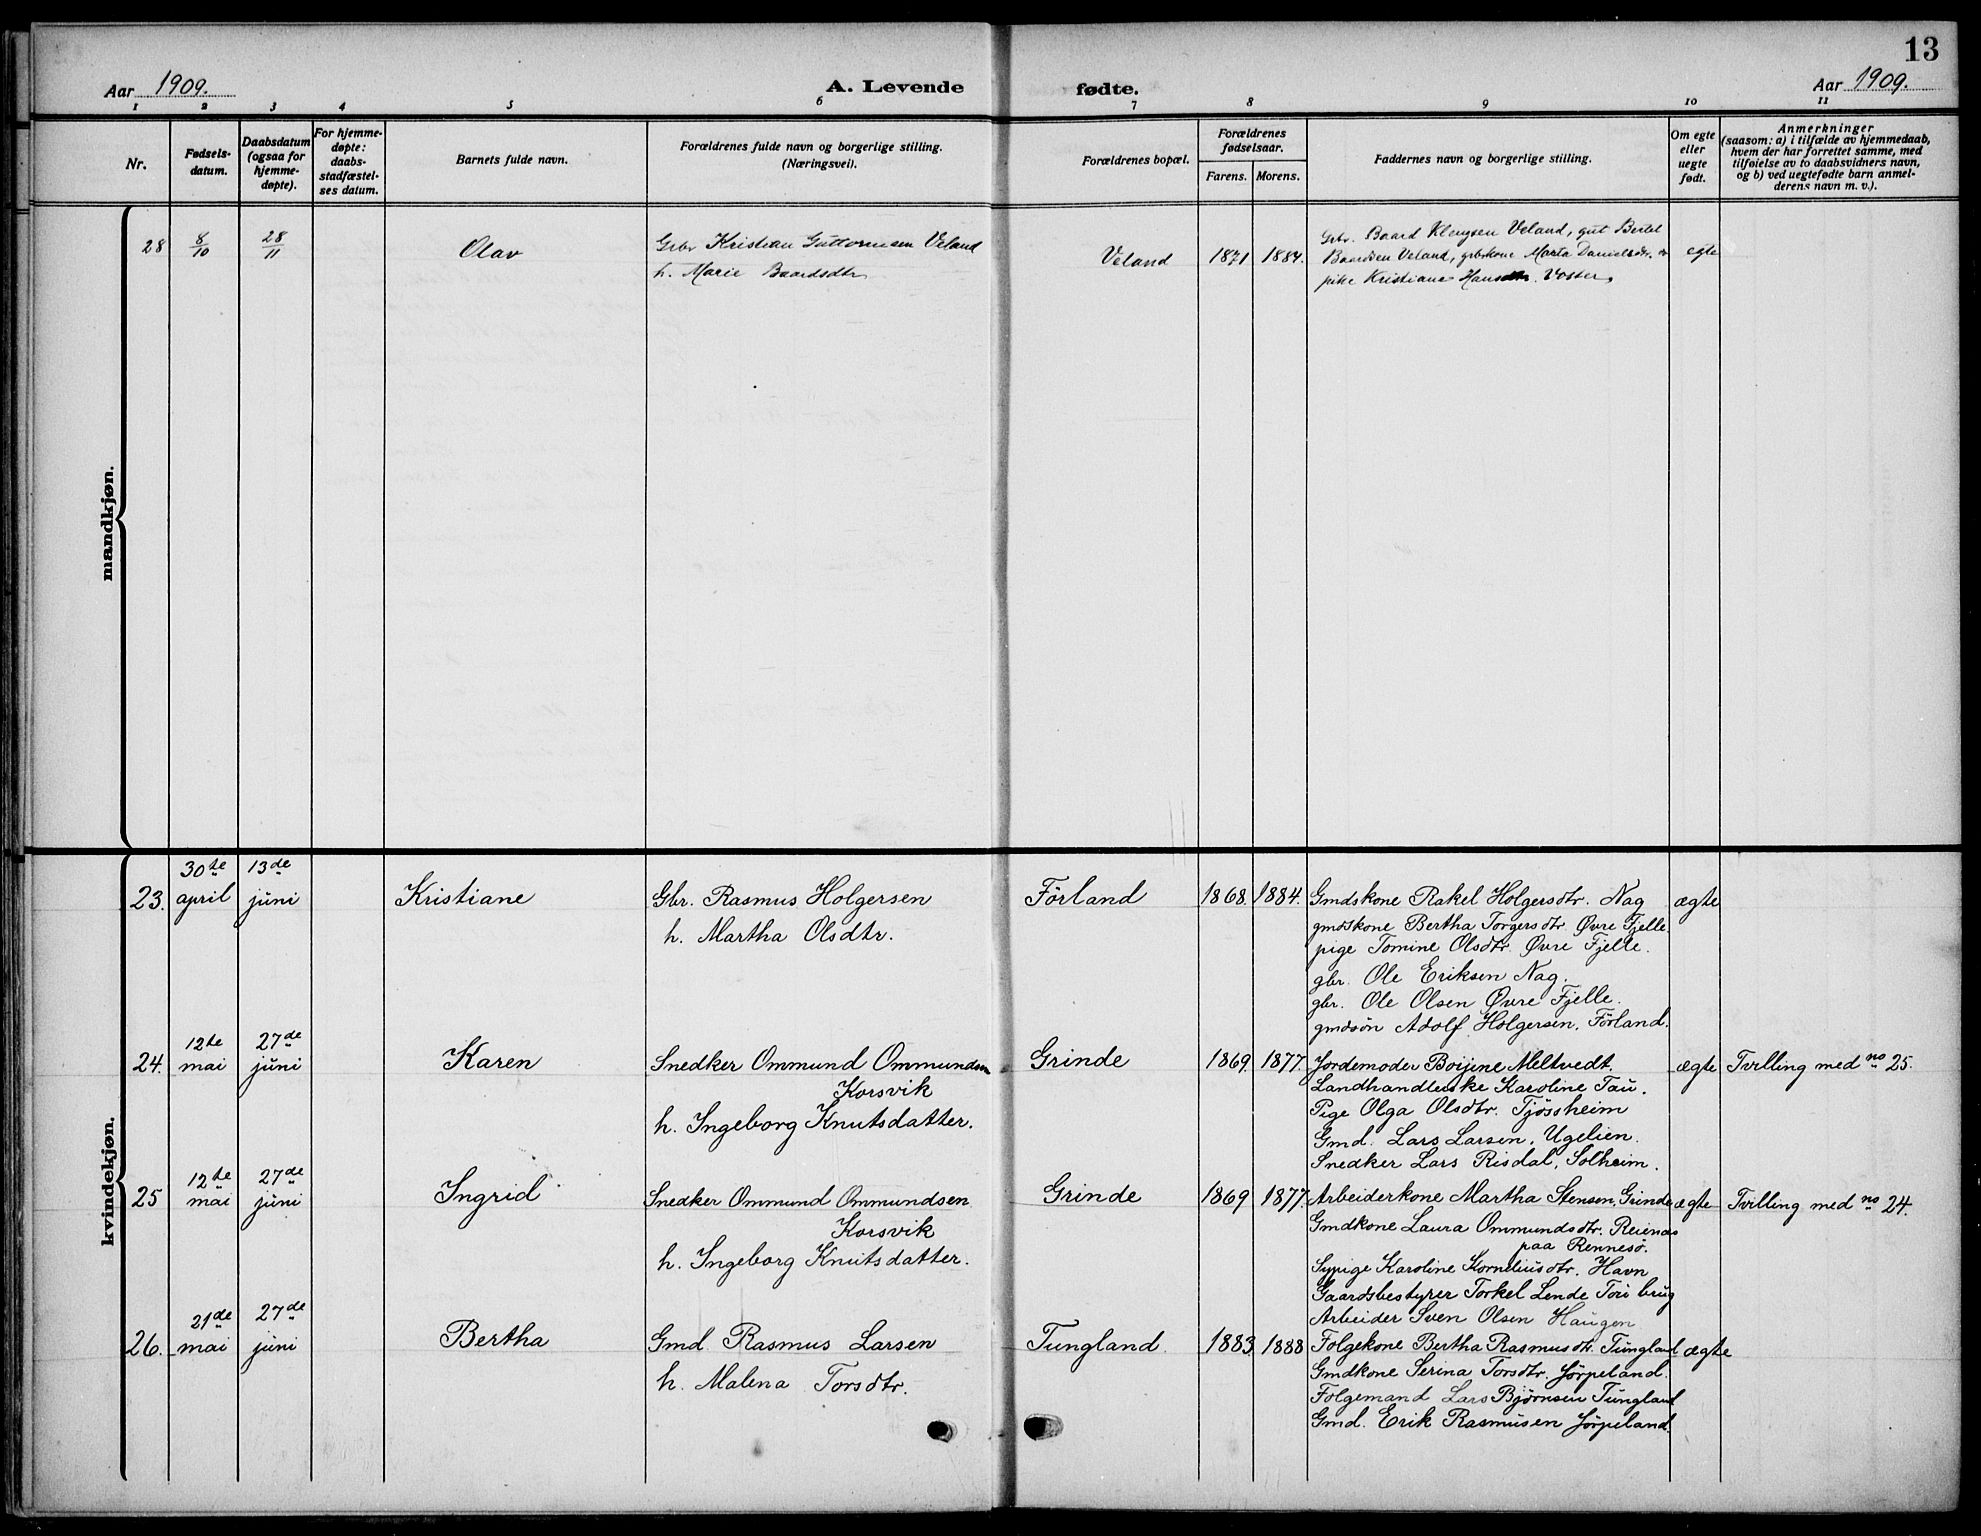 13
Aar 1909. A. Levende fødte. Aar 1909.
1 2 3 4 5 6 7 8 9 10 11
Nr.
Fødsels-
datum.
Daabsdatum
(ogsaa for
hjemme-
døpte).
For hjemme-
døpte:
daabs-
stadfæstel-
ses datum.
Barnets fulde navn.
Forældrenes fulde navn og borgerlige stilling.
(Næringsvei).
Forældrenes bopæl.
Forældrenes
fødselsaar.
Farens. Morens.
Faddernes navn og borgerlige stilling.
Om egte
eller
uegte
født.
Anmerkninger
(saasom: a) i tilfælde av hjemmedaab,
hvem der har forrettet samme, med
tilføielse av to daabsvidners navn,
og b) ved uegtefødte barn anmel-
derens navn m. v.).
mandkjøn.
28
8/10
28/11
Olav
Grbr Kristian Guttormsen Veland
h. Marie Baardsdtr
Veland
1871 1884.
Grbr. Baard Klengsen Veland, gut Bertel
Baardsen Veland, grbrkone Marta Danielsdtr.
pike Kristiane Hansdtr. Voster
egte
kvindekjøn.
23.
30te
april
13de
juni
Kristiane
Gbr. Rasmus Holgersen
h. Martha Olsdtr.
Förland
1868. 1884.
Gmdskone Rakel Holgersdtr. Nag
gmdskone Bertha Torgersdtr. Øvre Fjelle.
pige Tomine Olsdtr. Øvre Fjelle.
gbr. Ole Eriksen Nag.
gbr. Ole Olsen Øvre Fjelle.
gmdsön Adolf Holgersen, Förland.
ægte
24.
12te
mai
27de
juni
Karen
Snedker Ommund Ommundsen
Korsvik
h. Ingeborg Knutsdatter.
Grinde
1869. 1877.
Jordemoder Boijine Meltvedt.
Landhandlerske Karoline Tau.
Pige Olga Olsdtr. Tjössheim
Gmd. Lars Larsen, Ugelien.
Snedker Lars Risdal, Solheim.
ægte
Tvilling med no 25.
25
12te
mai
27de
juni
Ingrid
Snedker Ommund Ommundsen
Korsvik
h. Ingeborg Knutsdatter.
Grinde
1869 1877.
Arbeiderkone Martha Stensen, Grinde
Gmdkone Laura Ommundsdtr. Reienas
paa Rennesö.
Sypige Karoline Korneliusdtr. Havn
Gaardsbestyrer Torkel Lende Tou brug
Arbeider Sven Olsen Haugen
ægte
Tvilling med no 24.
26.
21de
mai
27de
juni
Bertha
Gmd Rasmus Larsen
h. Malena Torsdtr.
Tungland.
1883. 1888
Folgekone Bertha Rasmusdtr. Tungland
Gmdkone Serina Torsdtr. Jørpeland.
Folgemand Lars Bjørnsen Tungland
Gmd. Erik Rasmusen Jørpeland.
ægte